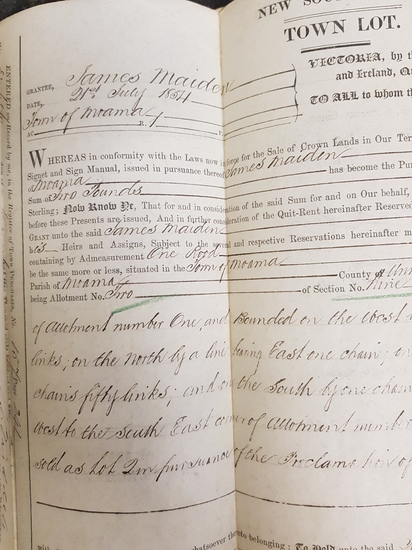 NEW SOU
TOWN LOT.
VICTORIA, by th
and Ireland, Qu
TO ALL to whom th
GRANTEE, James Maiden
DATE, 21st July 1854
Town of Moama
AC R. 1 P.
WHEREAS in conformity with the Laws now in force for the Sale of Crown Lands in Our Terr
Signet and Sign Manual, issued in pursuance thereof James Maiden
of Moama has become the Pur
Sum of Two Pounds
Sterling; Now Know Ye, That for and in consideration of the said Sum for and on Our behalf,
before these Presents are issued, And in further consideration of the Quit-Rent hereinafter Reserve
GRANT unto the said James Maiden
his Heirs and Assigns, Subject to the several and respective Reservations hereinafter m
containing by Admeasurement One Rood
be the same more or less, situated in the Town of Moama
Parish of Moama County of
being Allotment No. Two of Section No. Nine
of allotment number One, and Bounded on the West
links; on the North by a line bearing East one chain; on
chains fifty links; and on the South by one chain
West to the South East corner of allotment number
sold as Lot 2 in pursuance of the Proclamation of
whatsoever thereto belonging; To Hold unto the said